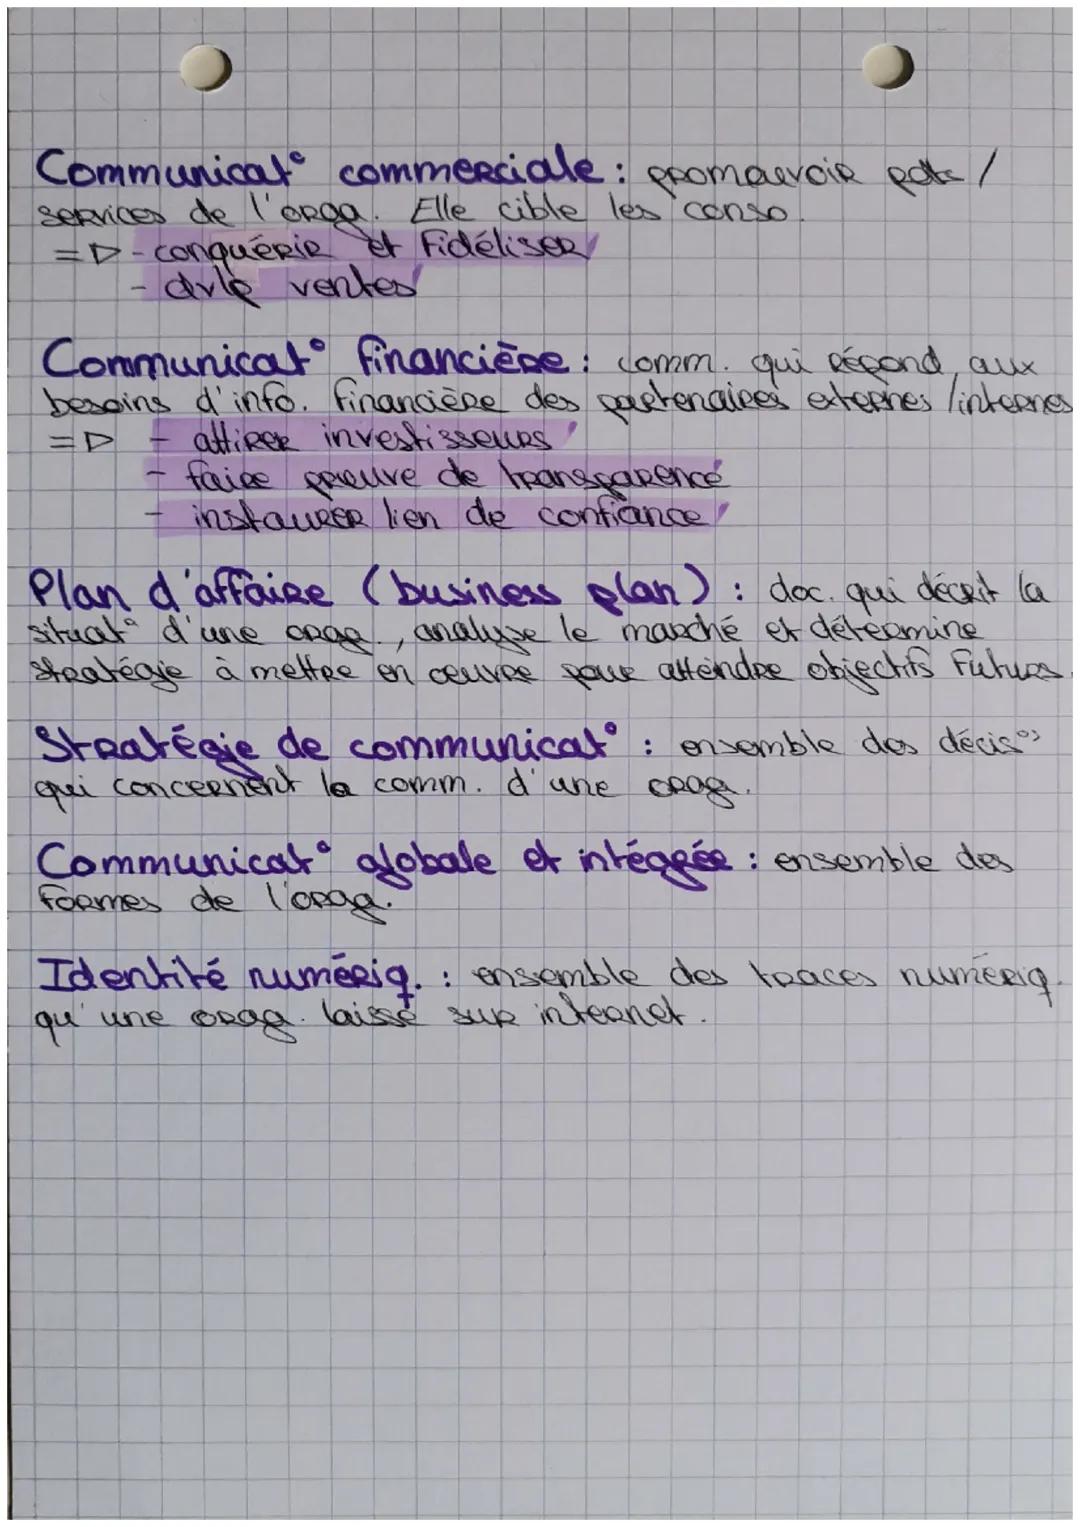 Communicat° commerciale : promouvoir pdts /
services de l'orga. Elle cible les conso.
=> - conquérir et fidéliser
- dvlp ventes
Communicat° financière : comm. qui répond aux
besoins d'info. financière des partenaires externes / internes
=> - attirer investisseurs
- faire preuve de transparence
- instaurer lien de confiance
Plan d'affaire (business plan) : doc. qui décrit la
situat° d'une orga., analyse le marché et détermine
stratégie à mettre en œuvre pour atteindre objectifs futurs.
Stratégie de communicat° : ensemble des décis°s
qui concernent la comm. d'une orga.
Communicat° globale et intégrée : ensemble des
formes de l'orga.
Identité numériq. : ensemble des traces numériq.
qu'une orga. laisse sur internet.